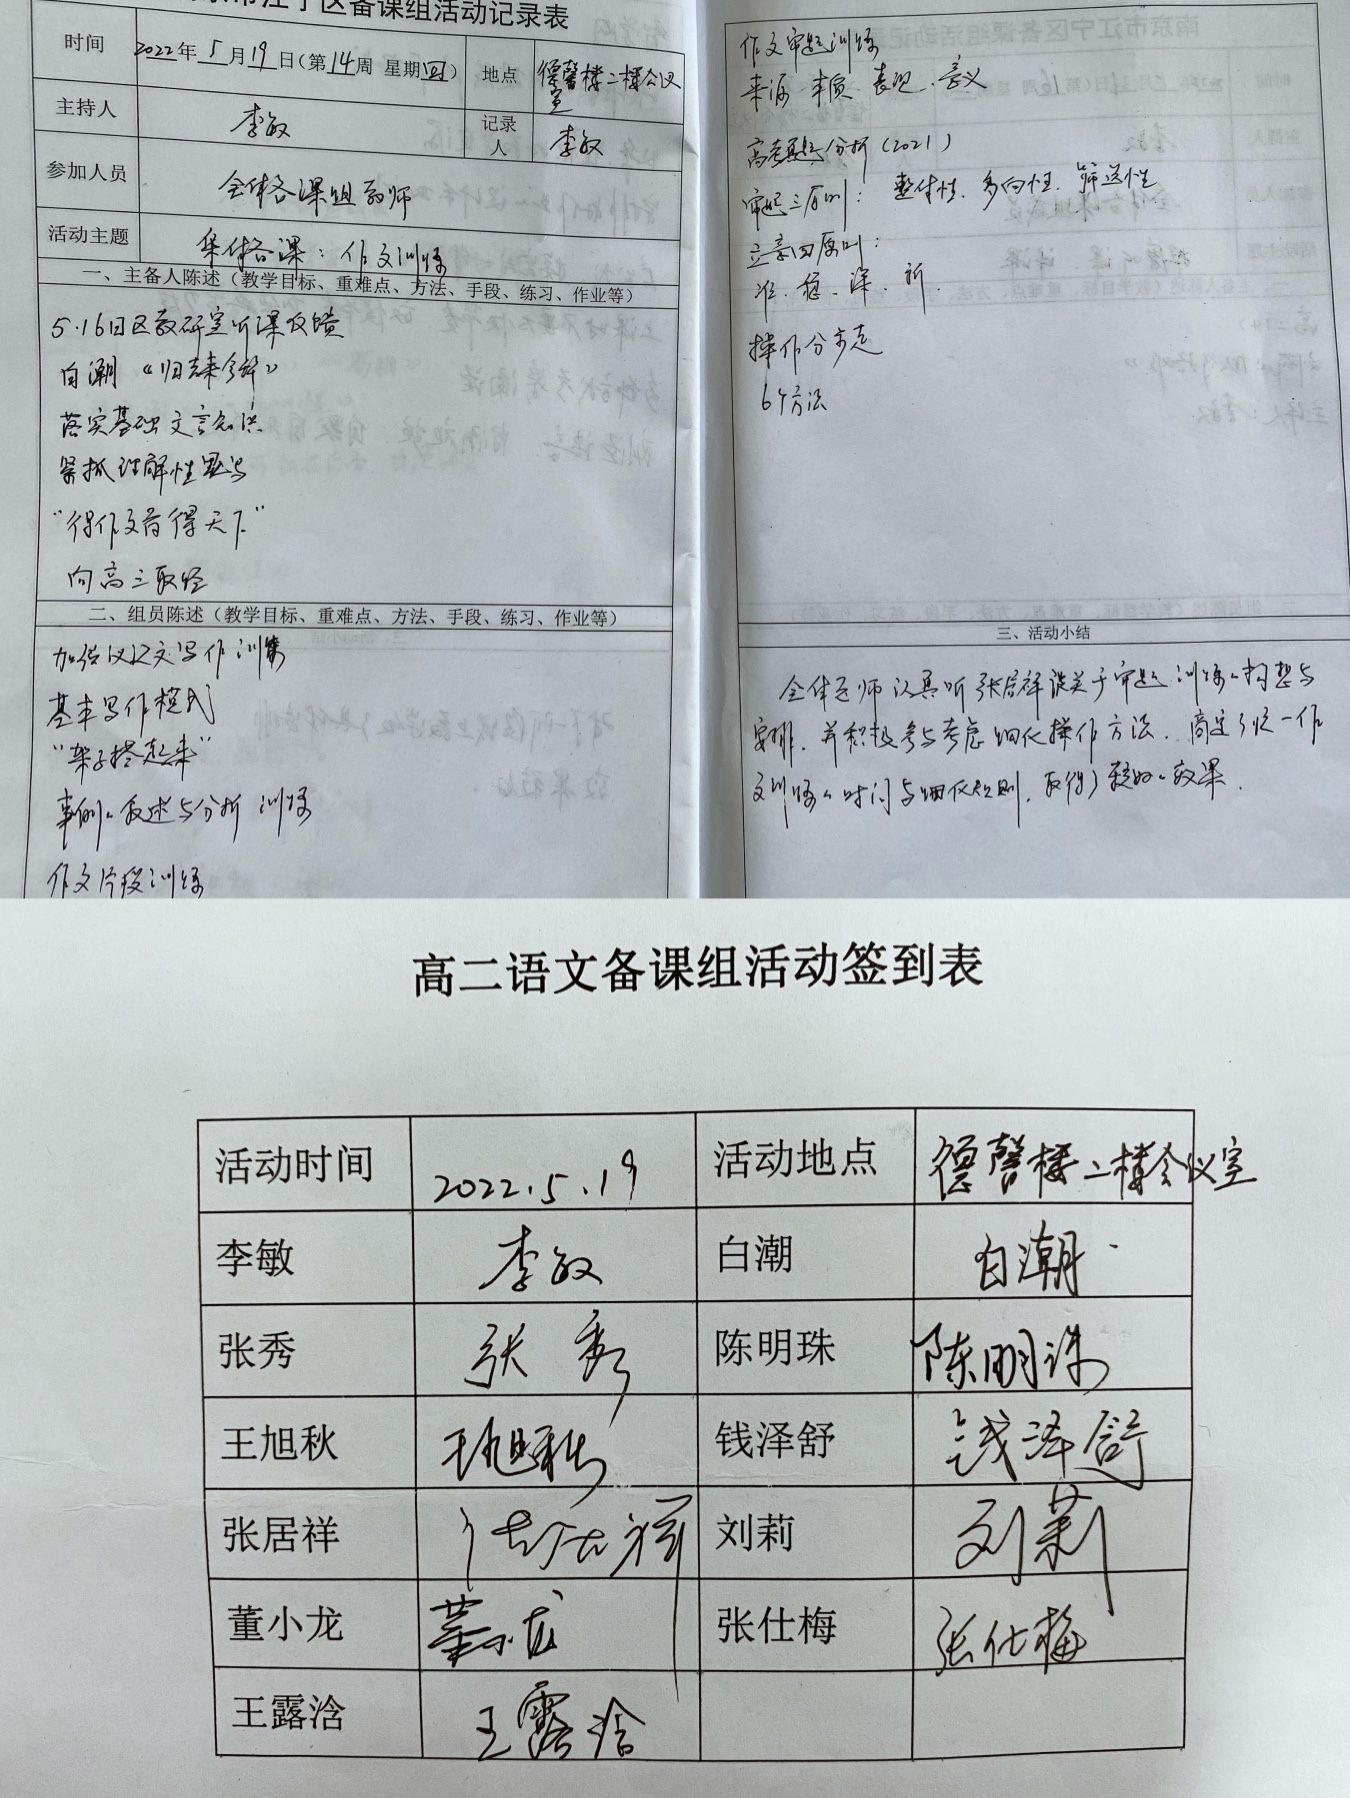 京市江宁区备课组活动记录表
时间 2022年5月19日(第14周 星期四) 地点 德馨楼二楼会议室
主持人 李敏 记录人 李敏
参加人员 全体备课组教师
活动主题 集体备课：作文训练
一、主备人陈述（教学目标、重难点、方法、手段、练习、作业等）
5.16日区教研室听课反馈
白潮《归去来兮辞》
落实基础文言知识
紧抓理解性默写
“得作文者得天下”
向高三取经
二、组员陈述（教学目标、重难点、方法、手段、练习、作业等）
加强议论文写作训练
基本写作模式
“架子搭起来”
事例的叙述与分析训练
作文片段训练
作文审题训练
来源 本质 表现 意义
高考真题分析（2021）
审题三原则：整体性、多向性、筛选性
立意四原则：
准、稳、深、新.
操作分步走
6个方法
三、活动小结
全体老师认真听张居祥谈关于审题训练的构想与
安排，并积极参与考虑细化操作方法，商定了统一作
文训练的时间与细化规则，取得了较好的效果.
高二语文备课组活动签到表
活动时间 2022.5.19 活动地点 德馨楼二楼会议室
李敏 李敏 白潮 白潮
张秀 张秀 陈明珠 陈明珠
王旭秋 王旭秋 钱泽舒 钱泽舒
张居祥 张居祥 刘莉 刘莉
董小龙 董小龙 张仕梅 张仕梅
王露浛 王露浛